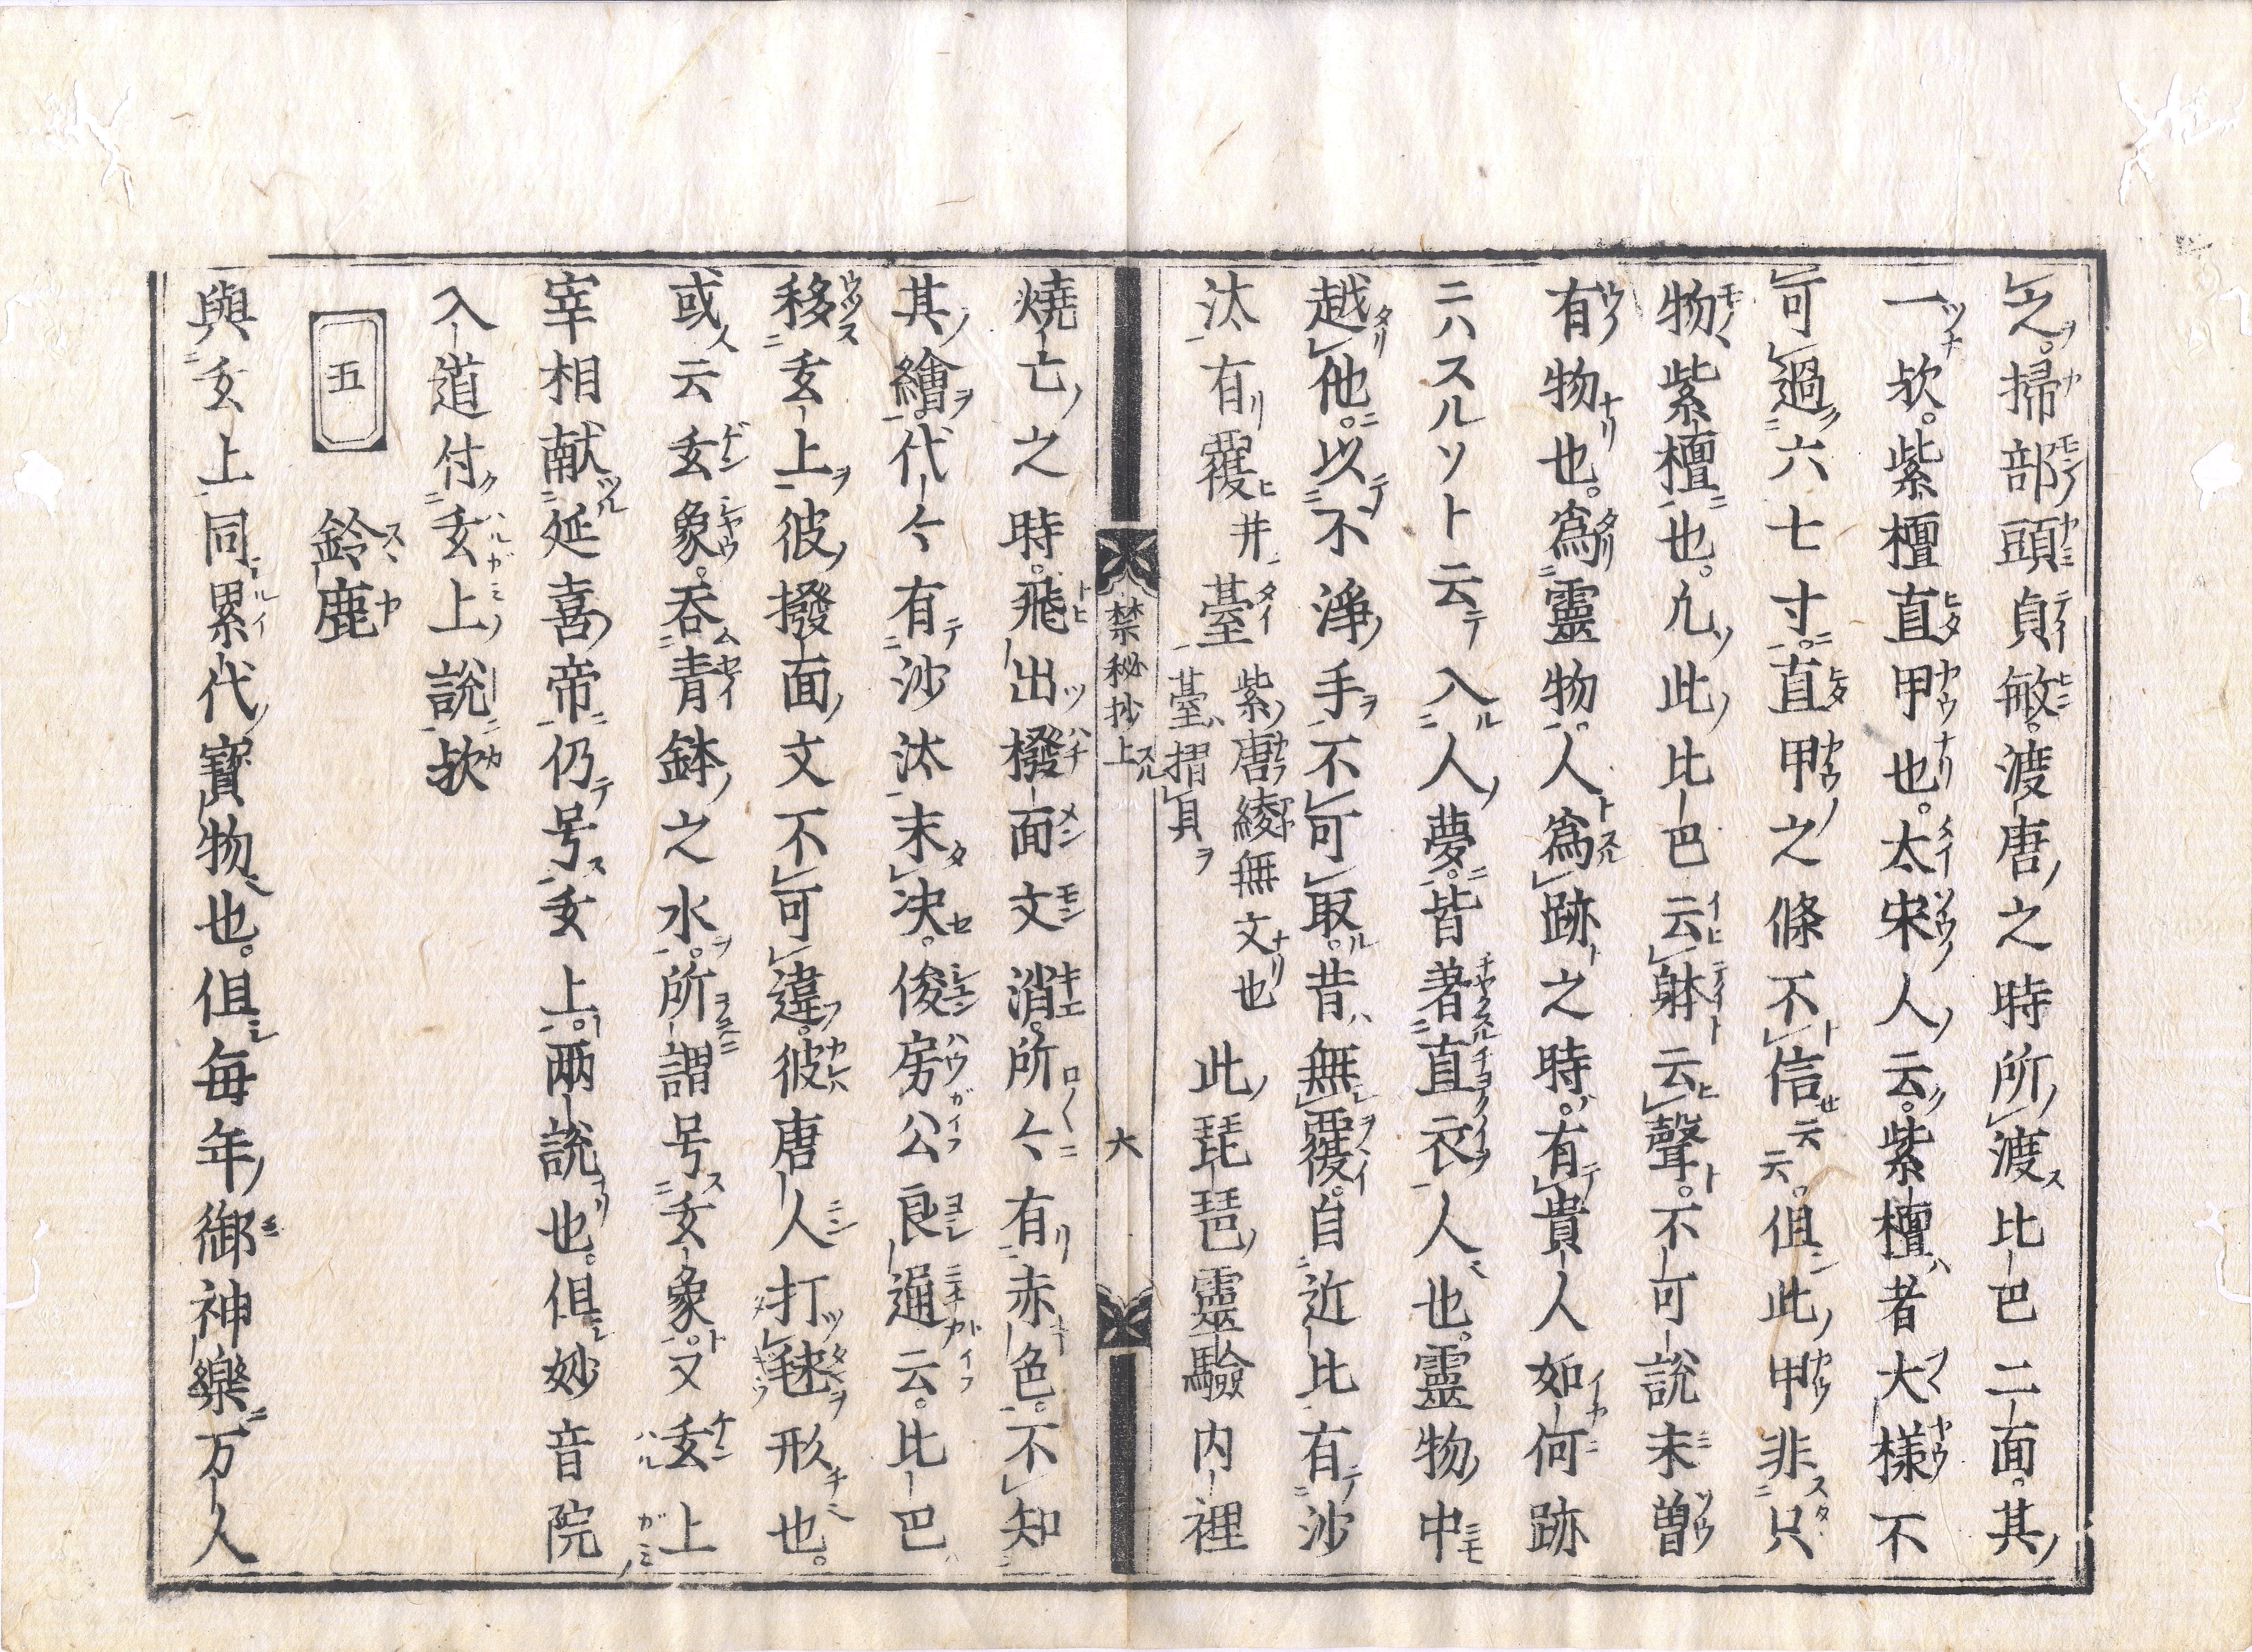 之。掃部頭貞敏。渡唐之時所渡比巴二面。其
一欤。紫檀直甲也。太宋人云。紫檀者大様不
可過六七寸。直甲之條不信云云。但此甲非只
物紫檀也。凢此比巴云躰云聲。不可説未曽
有物也。為靈物。人為跡之時。有貴人如何跡
ニハスルソト云テ入人夢。皆著直衣人也。靈物中
越他。以不淨手不可取。昔無覆。自近比有沙
汰有覆井臺 紫唐綾無文也 臺摺貝ヲ 此琵琶靈驗内裡
禁秘抄上 六
燒亡之時。飛出撥面文消。所々有赤色。不知
其繪。代々有沙汰未决。俊房公良通云。比巴
移玄上彼撥面文不可違。彼唐人打毬形也。
或云玄象。呑青鉢之水。所謂号玄象。又玄上
宰相献延喜帝仍号玄上。两説也。但妙音院
入道付玄上説欤
五 鈴鹿
與玄上同累代寳物也。但毎年御神樂万人